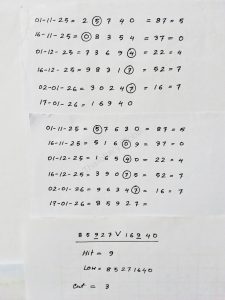 01-11-25 = 2 5 7 4 0 = 87 = 5
16-11-25 = 0 8 3 5 4 = 37 = 0
01-12-25 = 7 3 6 9 4 = 22 = 4
16-12-25 = 9 8 3 1 7 = 52 = 7
02-01-26 = 3 0 2 4 7 = 16 = 7
17-01-26 = 1 6 9 4 0
01-11-25 = 5 7 6 3 0 = 87 = 5
16-11-25 = 5 1 6 0 9 = 37 = 0
01-12-25 = 1 6 5 4 0 = 22 = 4
16-12-25 = 3 9 0 7 5 = 52 = 7
02-01-26 = 9 6 3 4 7 = 16 = 7
17-01-26 = 8 5 9 2 7 =
8 5 9 2 7 V 1 6 9 4 0
Hit = 9
Low = 8 5 2 7 1 6 4 0
Cut = 3